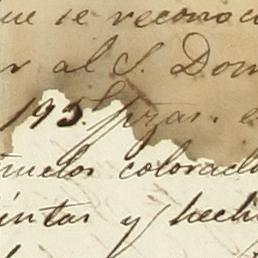 ue se reconoc
r al S. Dom
195. pzas. e
ñuelos colorado
intas y hech